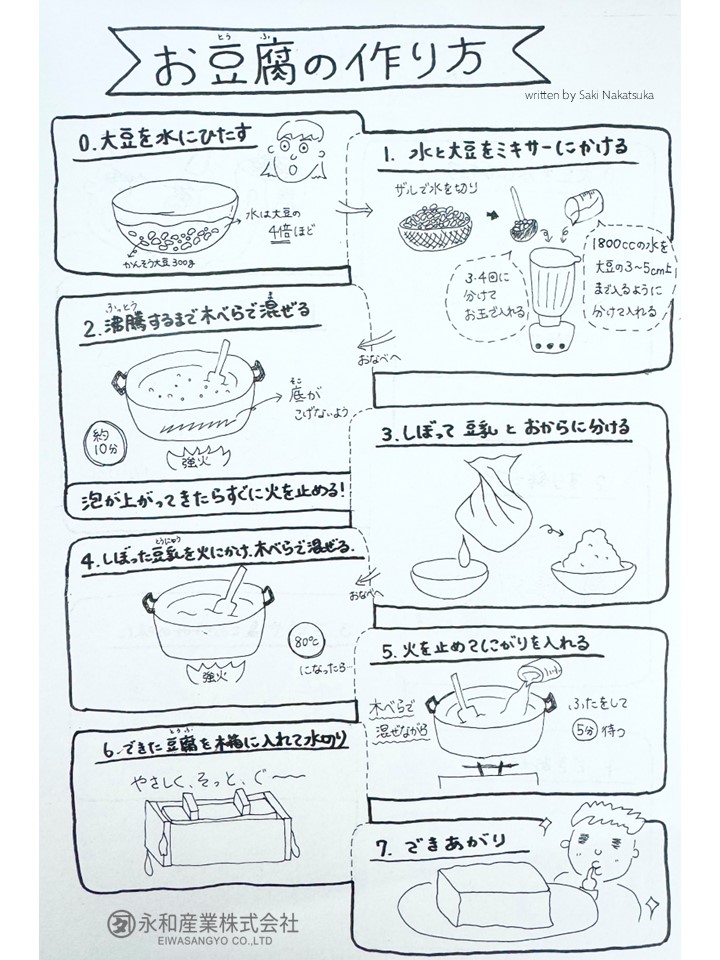 とう ふ
お豆腐の作り方
written by Saki Nakatsuka
0.大豆を水にひたす
水は大豆の
4倍ほど
かんそう大豆300g
1. 水と大豆をミキサーにかける
ザルで水を切り
3.4回に
分けて
お玉で入れる
1800ccの水を
大豆の3〜5cm上
まで入るように
分けて入れる
おなべへ
ふっとう ま
2.沸騰するまで木べらで混ぜる
そこ
底が
こげないよう
約
10分
強火
泡が上がってきたらすぐに火を止める!
3.しぼって 豆乳 と おからに分ける
おなべへ
とうにゅう
4.しぼった豆乳を火にかけ、木べらで混ぜる.
80℃
になったら
強火
5.火を止めてにがりを入れる
木べらで
混ぜながら
ふたをして
5分 待つ
とうふ
6.できた豆腐を木箱に入れて水切り
やさしく、そっと、ぐ〜〜
7.できあがり
永和産業株式会社
EIWASANGYO CO.,LTD